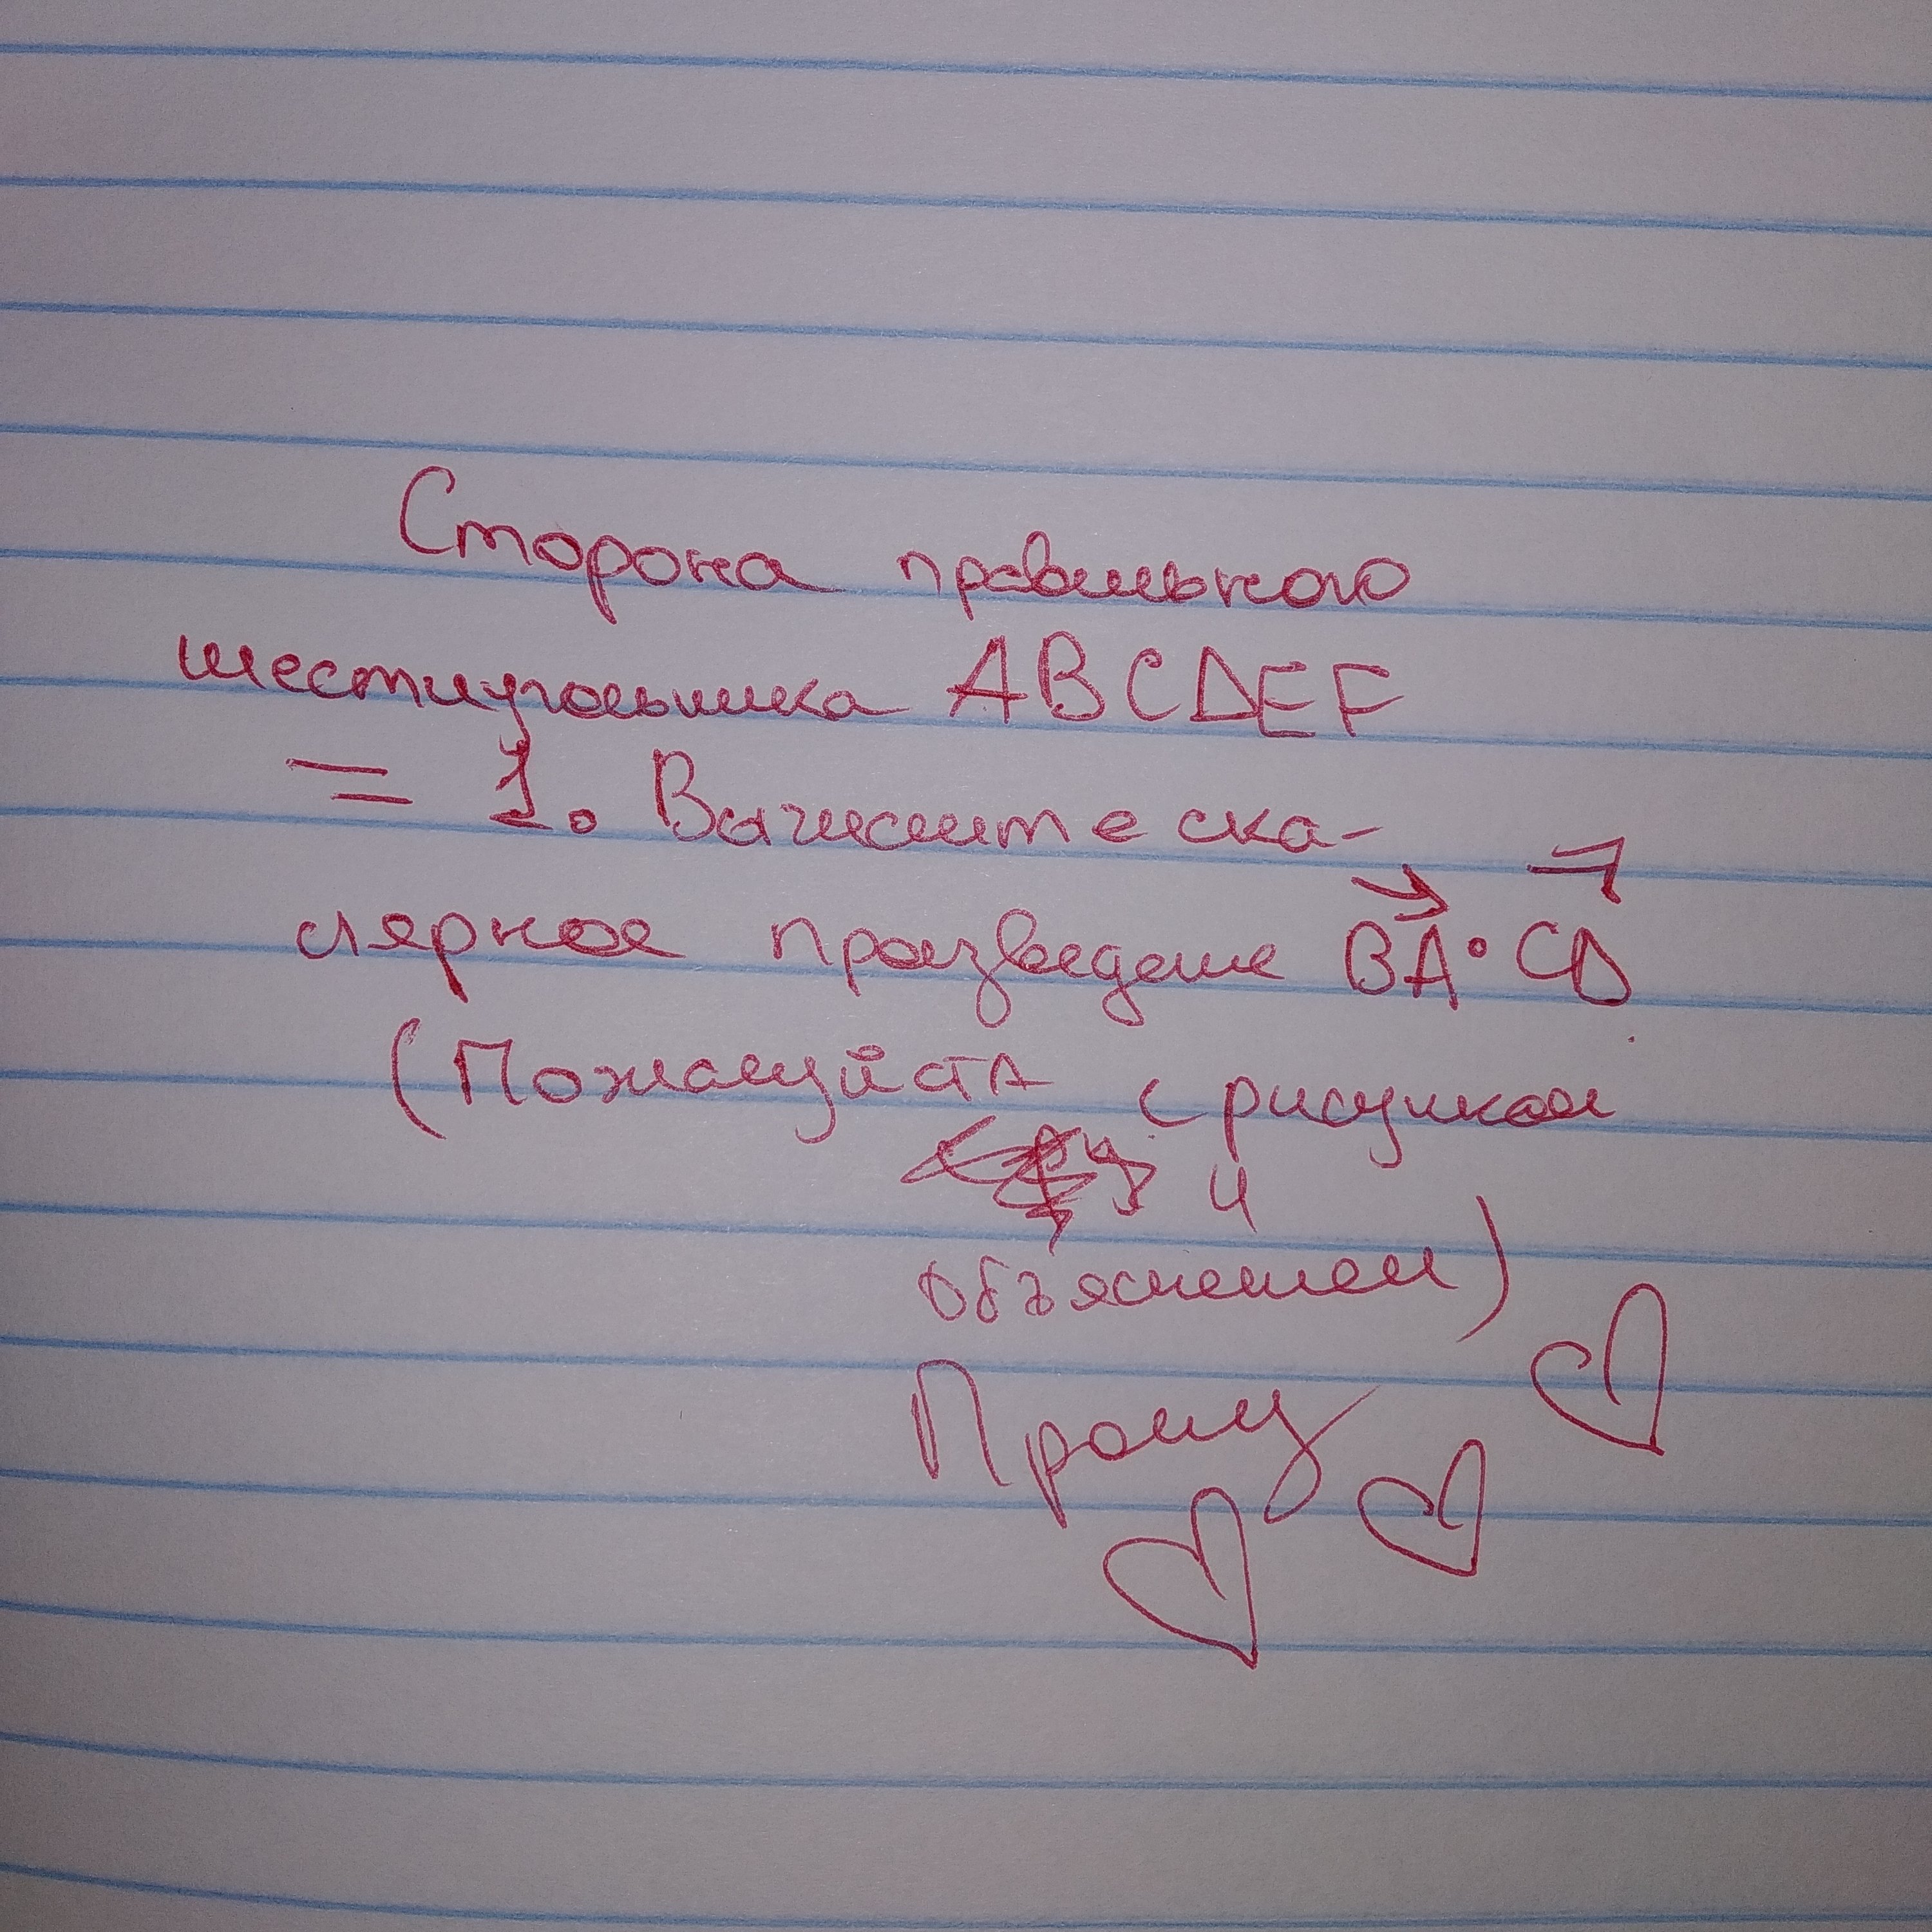 Сторона правильного
шестиугольника ABCDEF
= 1. Вычислите ска-
лярное произведение BA • CD
(Пожалуйста с рисунком
и
объяснением)
Прошу